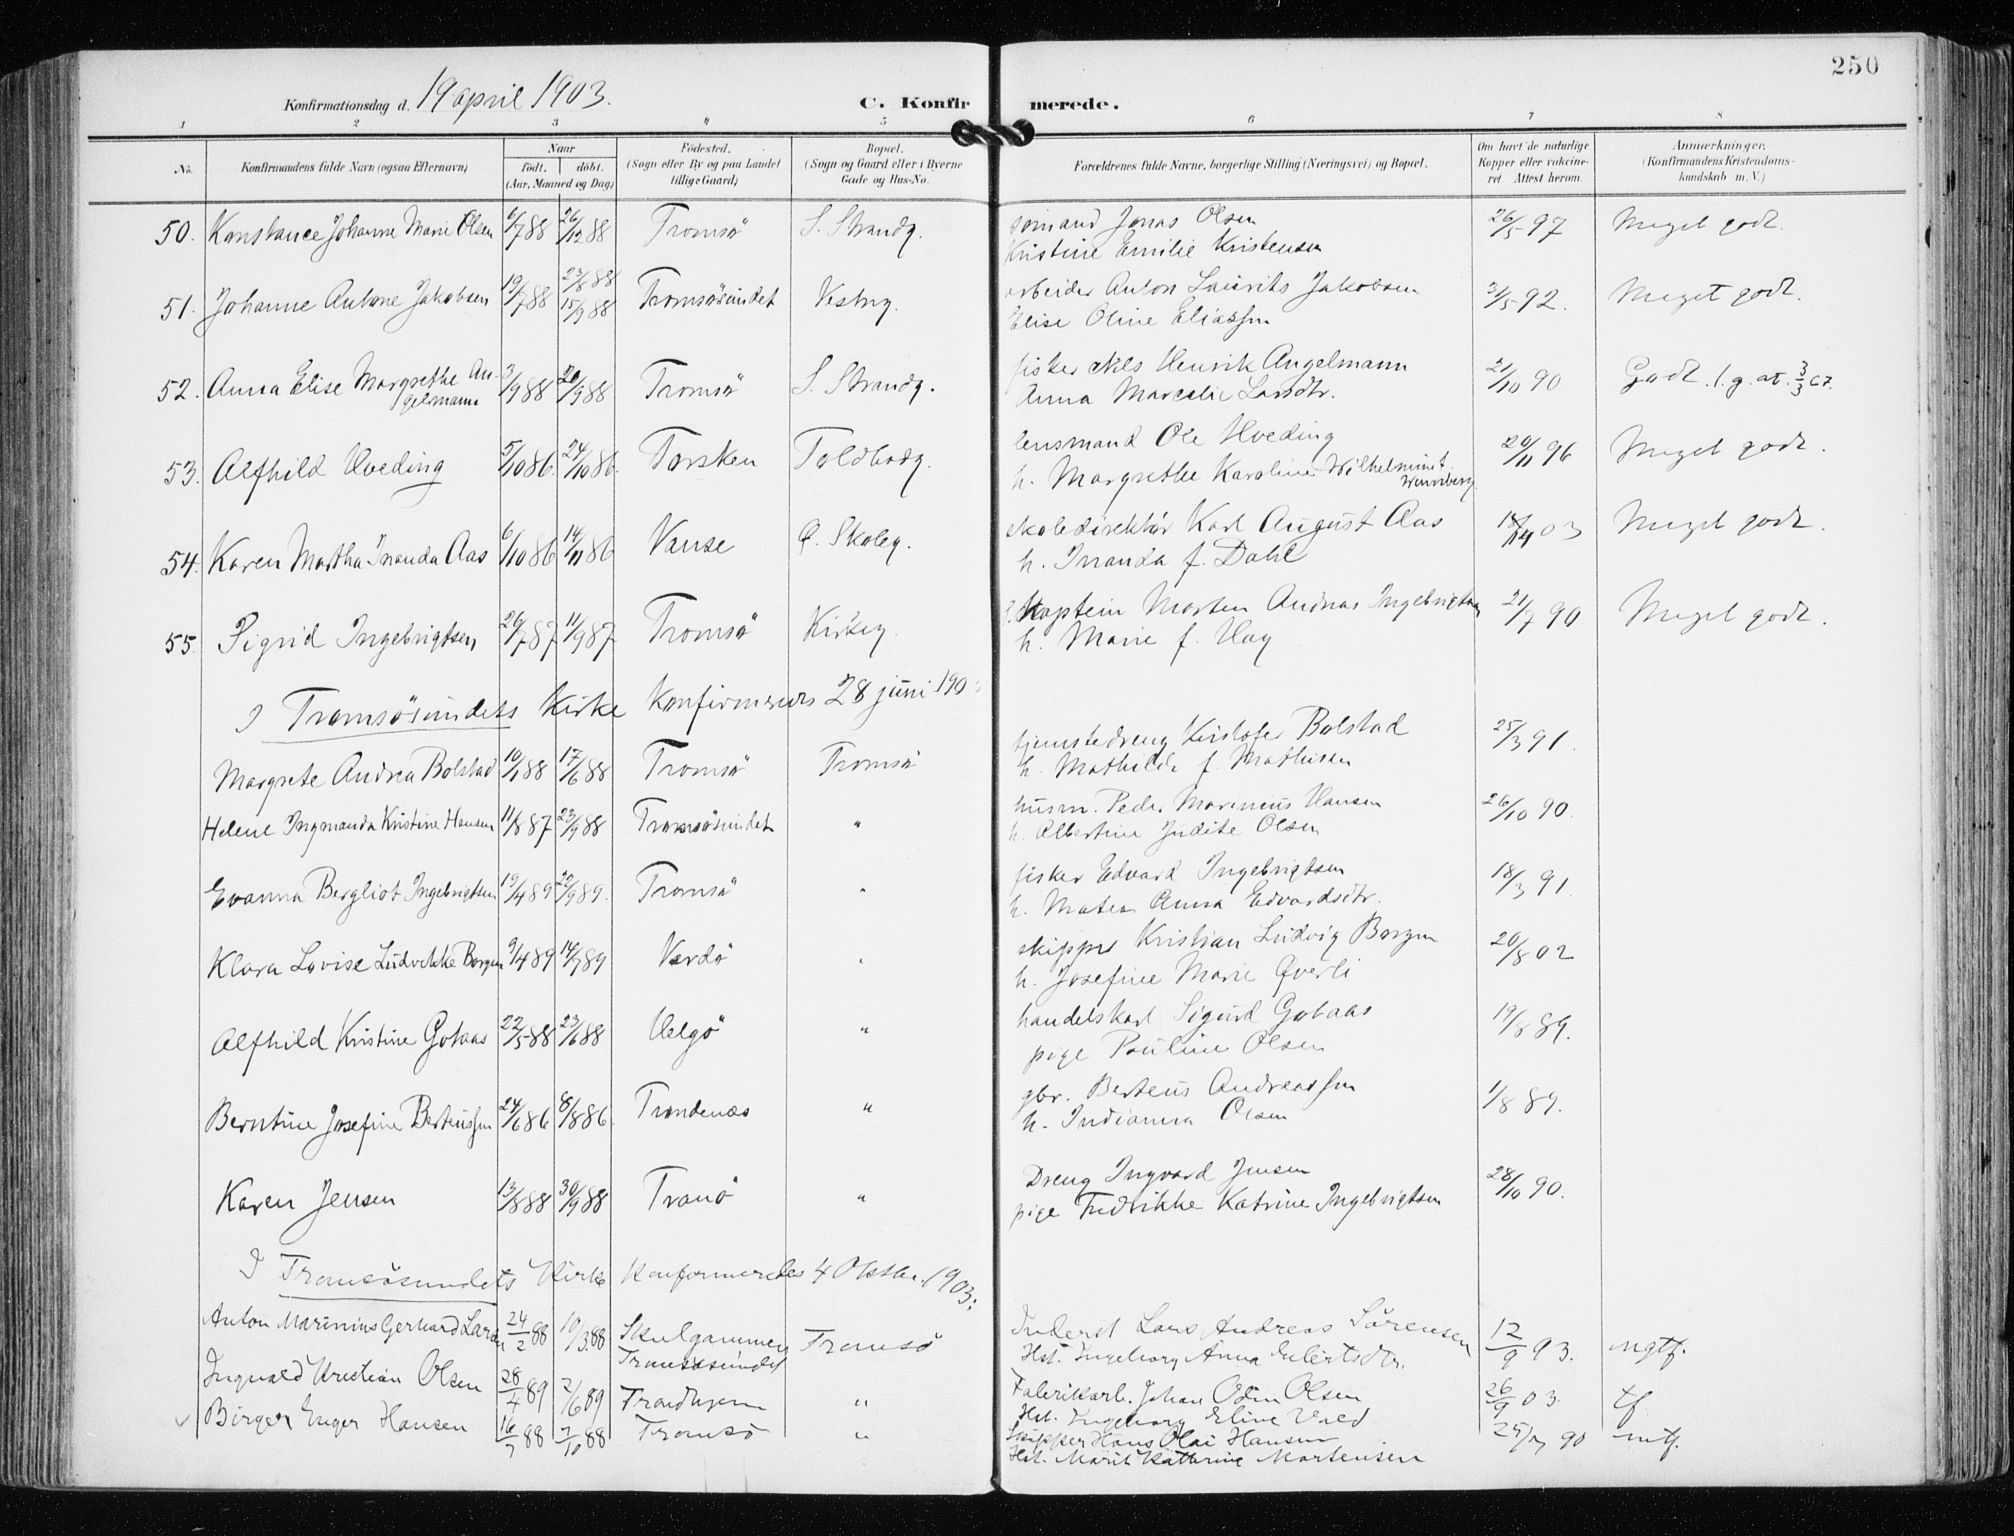 250
Konfirmationsdag d. 19 april 1903.
C. Konfirmerede.
1 2 3 4 5 6 7 8
No. Konfirmandens fulde Navn (ogsaa Efternavn) Naar født. døbt. (Aar, Maaned og Dag) Fødested. (Sogn eller By og paa Landet tillige Gaard) Bopæl. (Sogn og Gaard eller i Byerne Gade og Hus-No. Forældrenes fulde Navne, borgerlige Stilling (Næringsvei) og Bopæl. Om havt de naturlige Kopper eller vakcineret Attest herom. Anmærkninger. (Konfirmandens Kristendomskundskab m. V.)
50. Konstance Johanne Marie Olsen 6/7 88 26/12 88 Tromsö S. Strandg. sömand Jonas Olsen 26/5 97 Meget godt.
Kristine Emilie Kristensen
51. Johanne Antone Jakobsen 19/7 88 23/8 88 15/9 88 Tromsösundet Vestrg. arbeider Anton Laurits Jakobsen 3/5 92. Meget godt.
Elise Oline Eliassen
52. Anna Elise Margrethe Angelmann 3/9 88 20/9 88 Tromsö S. Strandg. fisker Nils Henrik Angelmann 21/10 90 Godt. l. g. at. 3/3 03.
Anna Marcelie Larsdtr.
53. Alfhild Hveding 5/10 86. 24/10 86. Torsken Toldbodg. lensmand Ole Hveding 20/11 96 Meget godt.
h. Margrethe Karoline Wilhelmine Wennberg.
54. Karen Martha Inanda Aas 6/10 86 14/11 86 Vanse Ö. Skoleg. skoledirektör Karl August Aas 15/4 03 Meget godt.
h. Inanda f. Dahl
55. Sigrid Ingebrigtsen 26/7 87 11/9 87 Tromsö Kirkeg. Kaptein Morten Andreas Ingebrigtsen 21/7 90 Meget godt.
h. Marie f. Hay
I Tromsösundets Kirke konfirmeres 28 juni 1903
Margrete Andrea Bolstad 10/1 88 17/6 88 Tromsö Tromsö tjenestedreng Kristofer Bolstad 25/3 91.
h. Mathilde f. Mathisen
Helene Ingmanda Kristine Hansen 11/8 87 23/9 88 Tromsösundet " husm. Peder Marineus Hansen 26/10 90.
h. Albertine Judite Olsen
Evanna Bergliot Ingebrigtsen 19/4 89 22/9 89. Tromsö " fisker Edvard Ingebrigtsen 18/3 91.
h. Matea Anna Edvardsdtr.
Klara Lovise Ludvikke Borgen 9/4 89 14/7 89 Vardö " skipper Kristian Ludvig Borgen 20/8 02
h. Josefine Marie Qverli
Alfhild Kristine Gotaas 22/5 88 23/6 88 Helgö " handelskarl Sigurd Gotaas 19/8 89.
pige Pauline Olsen
Berntine Josefine Berteussen 24/6 86 8/8 86. Trondenæs " gbr. Berteus Andreassen 1/8 89.
h. Indianna Olsen
Karen Jensen 13/8 88 30/9 88 Tranö " Dreng Ingvard Jensen 28/10 90.
pige Fredrikke Katrine Ingebrigtsen
I Tromsösundets Kirke konfirmeredes 4 Oktbr. 1903:
Anton Marinius Gerhard Larsen 24/2 88 10/3 88 Skulgammen Tromsösundet Tromsö Inderst Lars Andreas Sörensen 12/9 93. mgtf.
Hst. Ingeborg Anna Eilertsdtr.
Ingvald Kristian Olsen 28/4 89 2/6 89 Trondhjem " Fabrikarb. Johan Odin Olsen 26/9 03. tf
Hst. Ingeborg Eline Vald
Birger Enger Hansen 16/7 88 7/10 88 Tromsö " Skipper Hans Olai Hansen 25/7 90 mtf.
Hst. Marit Kathrine Mortensen